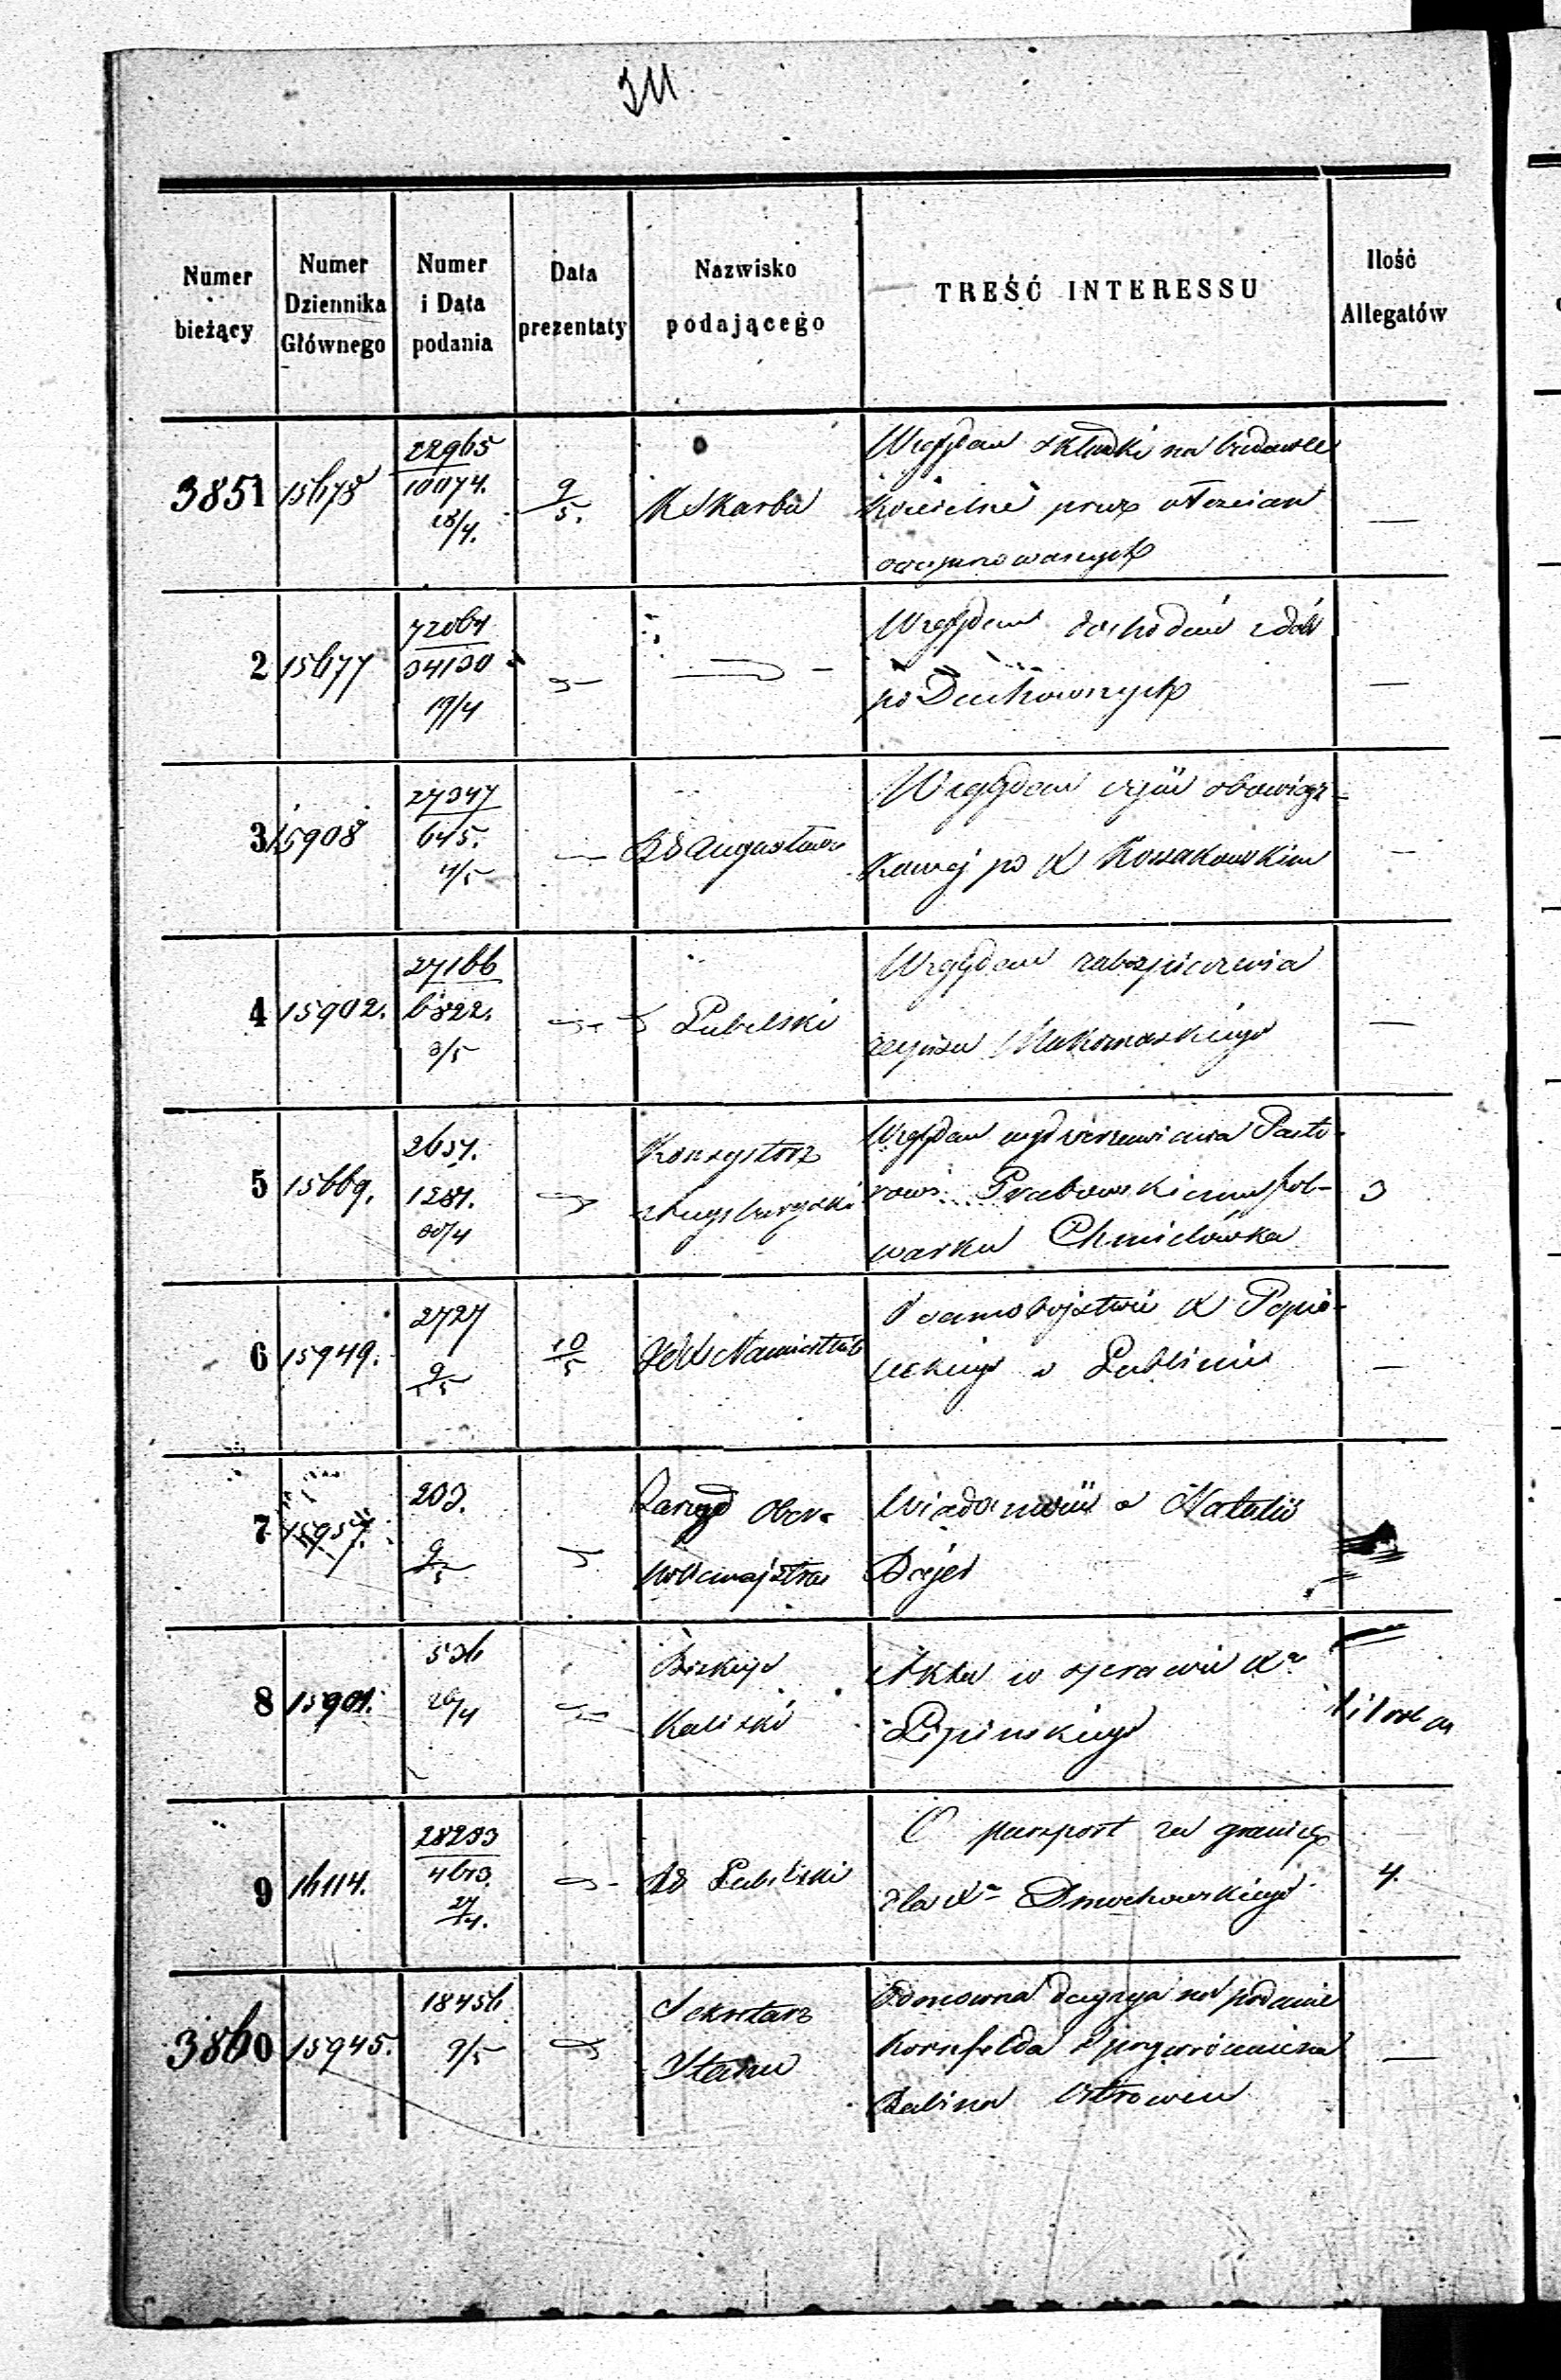 Numer bieżący
Numer Dziennika Głównego
Numer i Data podania
Data prezentaty
Nazwisko podającego
TREŚĆ INTERESSU
Ilość Allegatów
3851 15678 22965
10074.
18/4.
9/5.
K Skarbu
Względem składki na budowle
kościelne przez włościan
—
2 15677 72064
34130
19/4
Względem dochodów z dóbr
po Duchownych
—
3 15908 27347
645.
4/5
Augustow
Względem obowiąz-
kowej po X Kossakowskim
—
4 15902. 27166
6822.
3/5
Lubelski
Względem zabezpieczenia
zapisu Makomaskiego
—
5 15669. 2657.
1281.
30/4
Konsystorz
Augsburgski
Względem wydzierżawienia Pasto-
rowi Grabowskiemu fol-
warku Chmielówka
3
6 15949. 2727
9/5
10/5
Namiestnik
O samobójstwie X Popie-
leckiego w Lublinie
—
7 15957. 203.
9/5
Zarząd Ober-
policmajstra
Wiadomość o Natalii
Bajer
8 15901. 536
26/4
Biskup
Kaliski
Akta w sprawie Xa
Lipińskiego
1 i 1 vol
9 16114. 28293
4613.
27/4.
RG Lubelski
O paszport za granicę
dla Xa Dmochowskiego
4.
3860 15945. 18456
9/5
Sekretarz
Stanu
Odmowna decyzya na podanie
Kornfelda o przywrócenie na
Rabina Ostrowcu
—